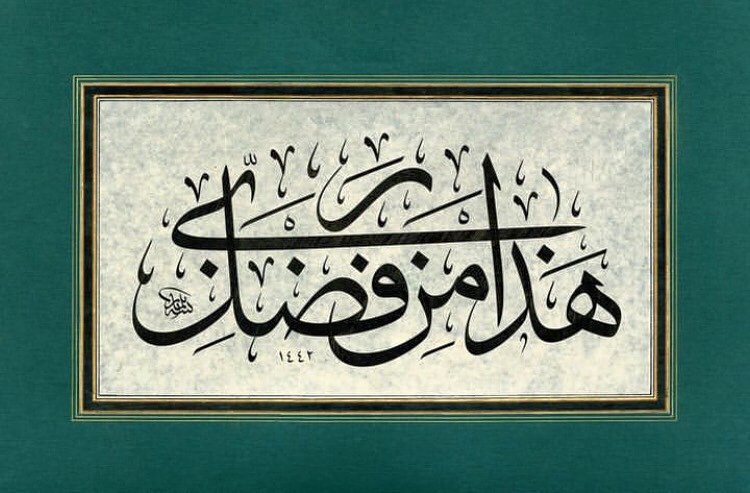 هَذَا مِنْ فَضْلِ رَبِّي
١٤٤٢